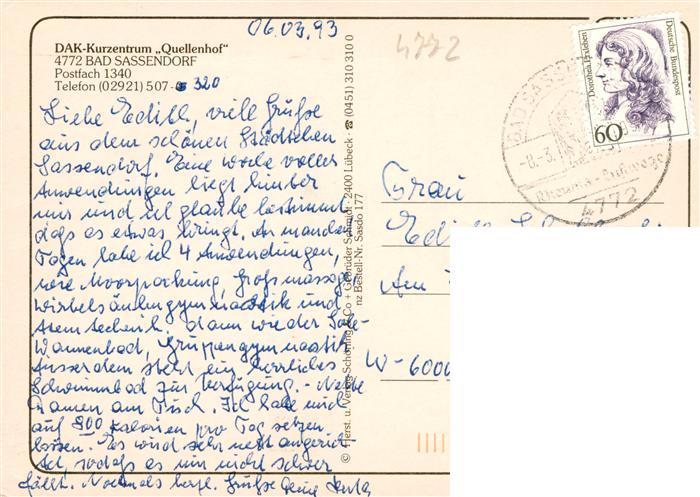 06.03.93
4772
DAK-Kurzentrum „Quellenhof"
4772 BAD SASSENDORF
Postfach 1340
Telefon (02921) 507- 320
Liebe Edith, viele Grüße
aus dem schönen Städtchen
Sassendorf. Eine Woche voller
Anwendungen liegt hinter
mir und ich glaube bestimmt
daß es etwas bringt. An manchen
Tagen habe ich 4 Anwendungen,
wie Moorpackung, Großmassage
Wirbelsäulengymnastik und
Atemtechnik, dann wieder Sole-
Wannenbad, Gruppengymnastik
Ausserdem steht ein herrliches
Schwimmbad zur Verfügung. - Nette
Damen am Tisch. Ich habe mich
auf 800 Kalorien pro Tag setzen
lassen. Es wird sehr nett angerich-
tet, sodaß es mir nicht schwer
fällt. Nochmals herzl. Grüße
© Herst. u. Verlag Schöning & Co + Gebrüder Schmidt · 2400 Lübeck · ☎ (0451) 310 310 0
nz Bestell-Nr. Sasdo 177
Dorothea Erxleben
Deutsche Bundespost
60
BAD SASSEN
-8.-3.
4772
Frau
Edith
Am
W-6000